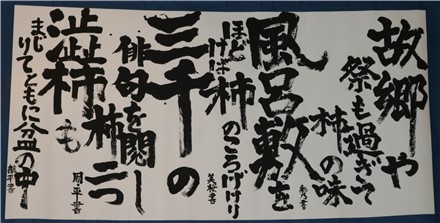 故郷や
祭も過ぎて
柿の味
風呂敷を
ほどけば柿のころげけり
三千の
俳句を閲し
柿二つ
渋柿も
まじりてともに盆の中